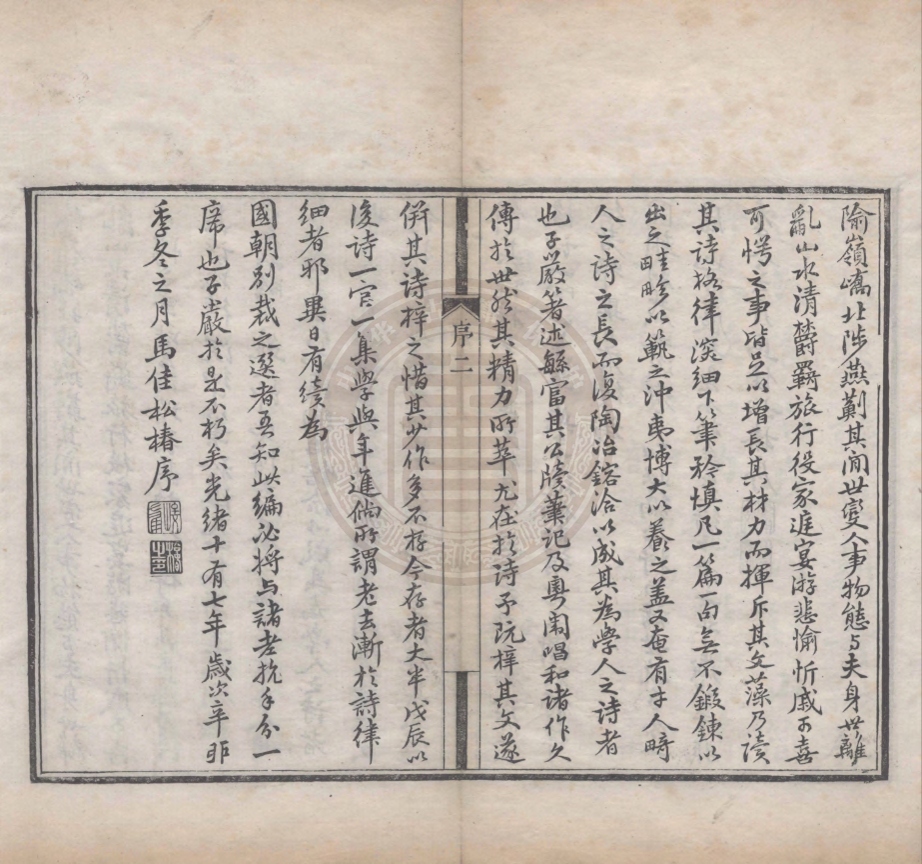 隃嶺嶠北涉燕薊其間世變人事物態与夫身世離
亂山水清欝羇旅行役家庭宴游悲愉忻戚可喜
可愕之事皆足以增長其材力而揮斥其文藻乃讀
其詩格律深細下筆矜慎凡一篇一句無不鍛鍊以
出之畦畛以範之沖夷博大以養之盖又奄有才人畸
人之詩之長而復陶冶鎔洽以成其為學人之詩者
也子嚴著述緐富其公牘筆記及粵闈唱和諸作久
傳於世然其精力所萃尤在於詩予既梓其文遂
序二
併其詩梓之惜其少作多不存今存者大半戊辰以
後詩一官一集學與年進倘所謂老去漸於詩律
細者邪異日有續為
國朝別裁之選者吾知此編必將与諸老抗手分一
席也子嚴於是不朽矣光緒十有七年歲次辛卯
季冬之月馬佳松椿序